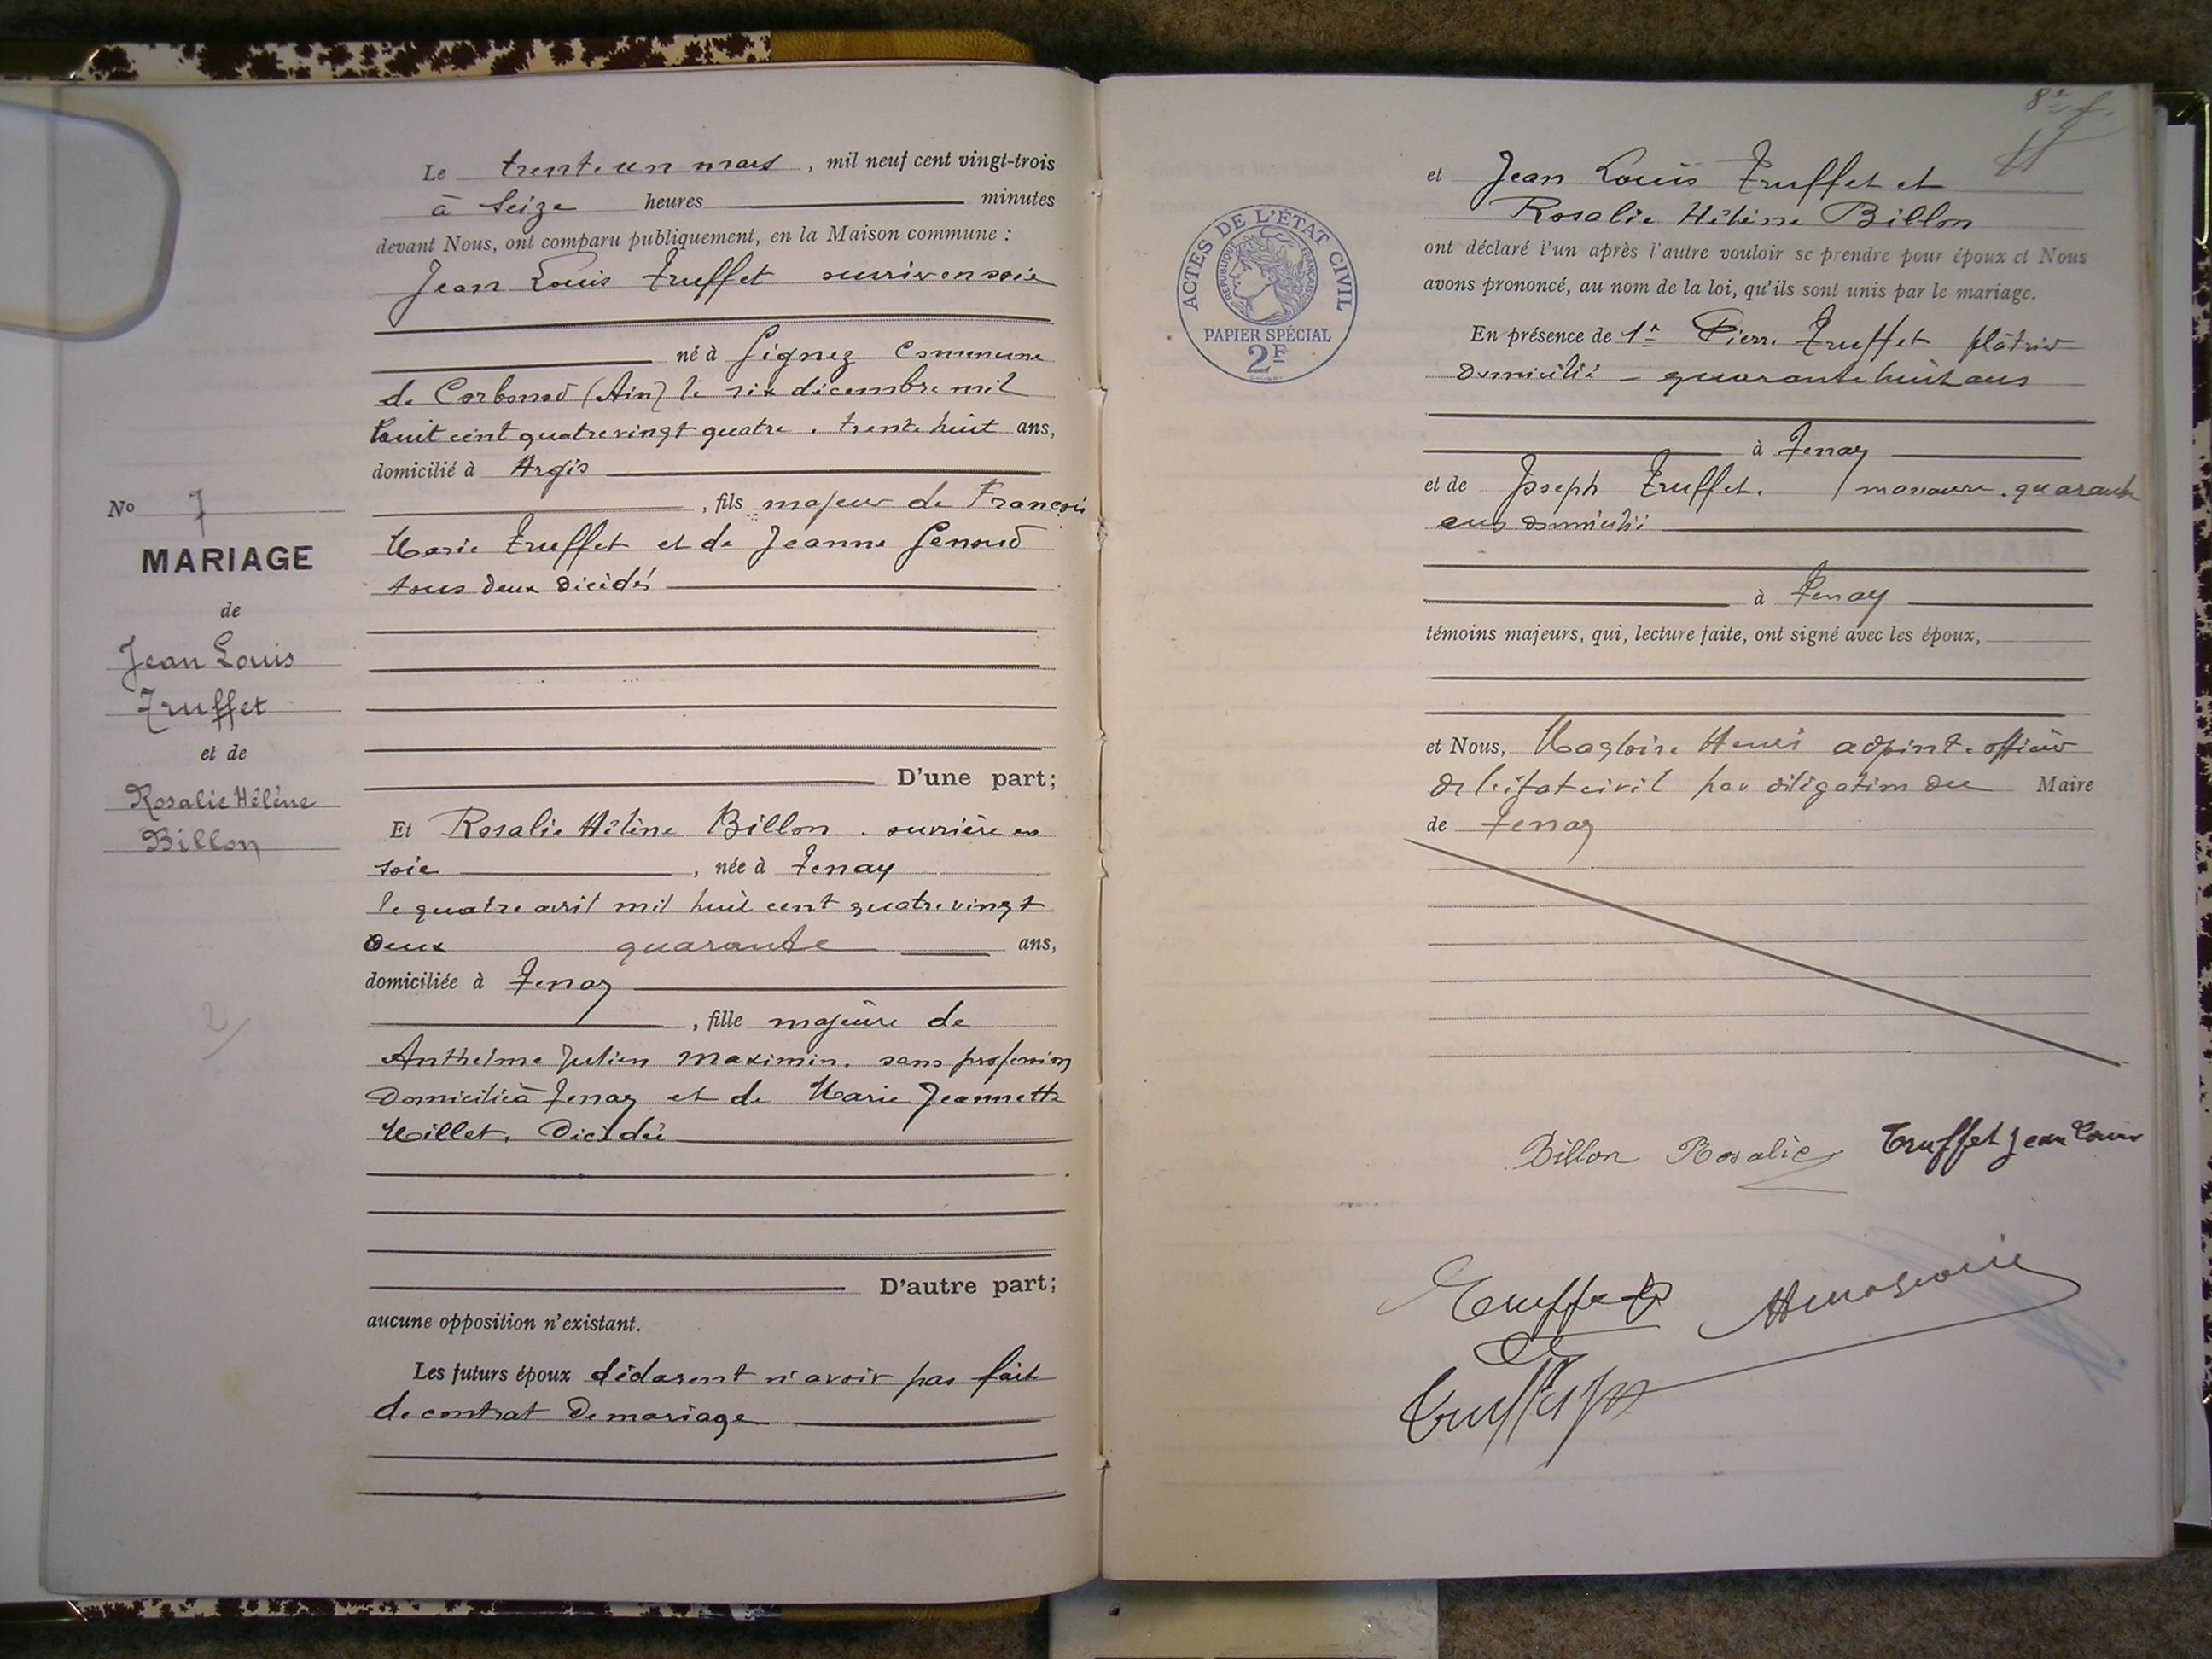 Le trente un mars, mil neuf cent vingt-trois
à seize heures minutes
devant Nous, ont comparu publiquement, en la Maison commune :
Jean Louis Truffet ouvrier en soie
né à Gignez Commune
de Corbonod (Ain) le six décembre mil
huit cent quatre vingt quatre. trente huit ans,
domicilié à Argis
, fils majeur de François
Marie Truffet et de Jeanne Genoud
tous deux décédés
D'une part;
No 7
MARIAGE
de
Jean Louis
Truffet
et de
Rosalie Hélène
Billon
Et Rosalie Hélène Billon. ouvrière en
soie, née à Tenay
le quatre avril mil huit cent quatre vingt
deux quarante ans,
domiciliée à Tenay
, fille majeure de
Anthelme Julien Maximin. sans profession
domicilié à Tenay et de Marie Jeannette
Millet. décédée
D'autre part;
aucune opposition n'existant.
Les futurs époux déclarent n'avoir pas fait
de contrat de mariage
8e f.
ACTES DE L'ÉTAT CIVIL
RÉPUBLIQUE FRANÇAISE
PAPIER SPÉCIAL
2F
et Jean Louis Truffet et
Rosalie Hélène Billon
ont déclaré l'un après l'autre vouloir se prendre pour époux et Nous
avons prononcé, au nom de la loi, qu'ils sont unis par le mariage.
En présence de 1° Pierre Truffet plâtrier
domicilié - quarante huit ans
à Tenay
et de Joseph Truffet. manœuvre. quarante
ans domicilié
à Tenay
témoins majeurs, qui, lecture faite, ont signé avec les époux,
et Nous, Magloire Henri adjoint officier
de l'état civil par délégation du Maire
de Tenay
Billon Rosalie Truffet Jean Louis
Truffet
HMagloire
Truffet